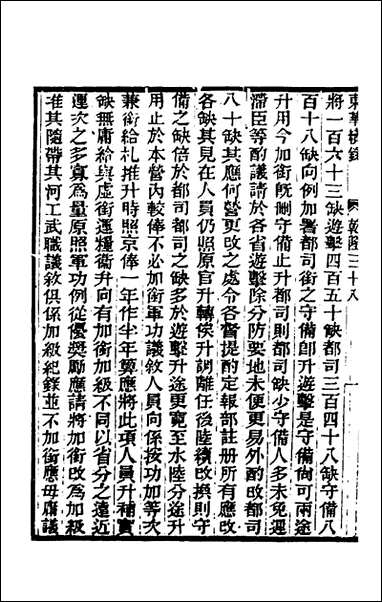 東華續錄　乾隆三十八
將一百六十三缺遊擊四百五十缺都司三百四十八缺守備八
百十八缺向例加署都司銜之守備卽升遊擊是守備尙可兩途
升用今加銜旣刪守備止升都司則都司缺少守備人多未免遲
滯臣等酌議請於各省遊擊除分防要地未便更易外酌改都司
八十缺其應何營更改之處令各督提酌定報部註册所有應改
各缺其見在人員仍照原官升轉俟升調離任後陸續改撰則守
備之缺倍於都司都司之缺多於遊擊升途更寬至水陸分途升
用止於本營內較俸不必加銜軍功議敘人員向係按功加等次
兼銜給札推升時照京俸一年作半年算應將此項人員升補實
缺無庸給與虛銜運糧衞升向有加銜加級不同以省分之遠近
運次之多寡爲量原照軍功例從優奬勵應請將加銜改爲加級
准其隨帶其河工武職議敘俱係加級紀錄並不加銜應毋庸議